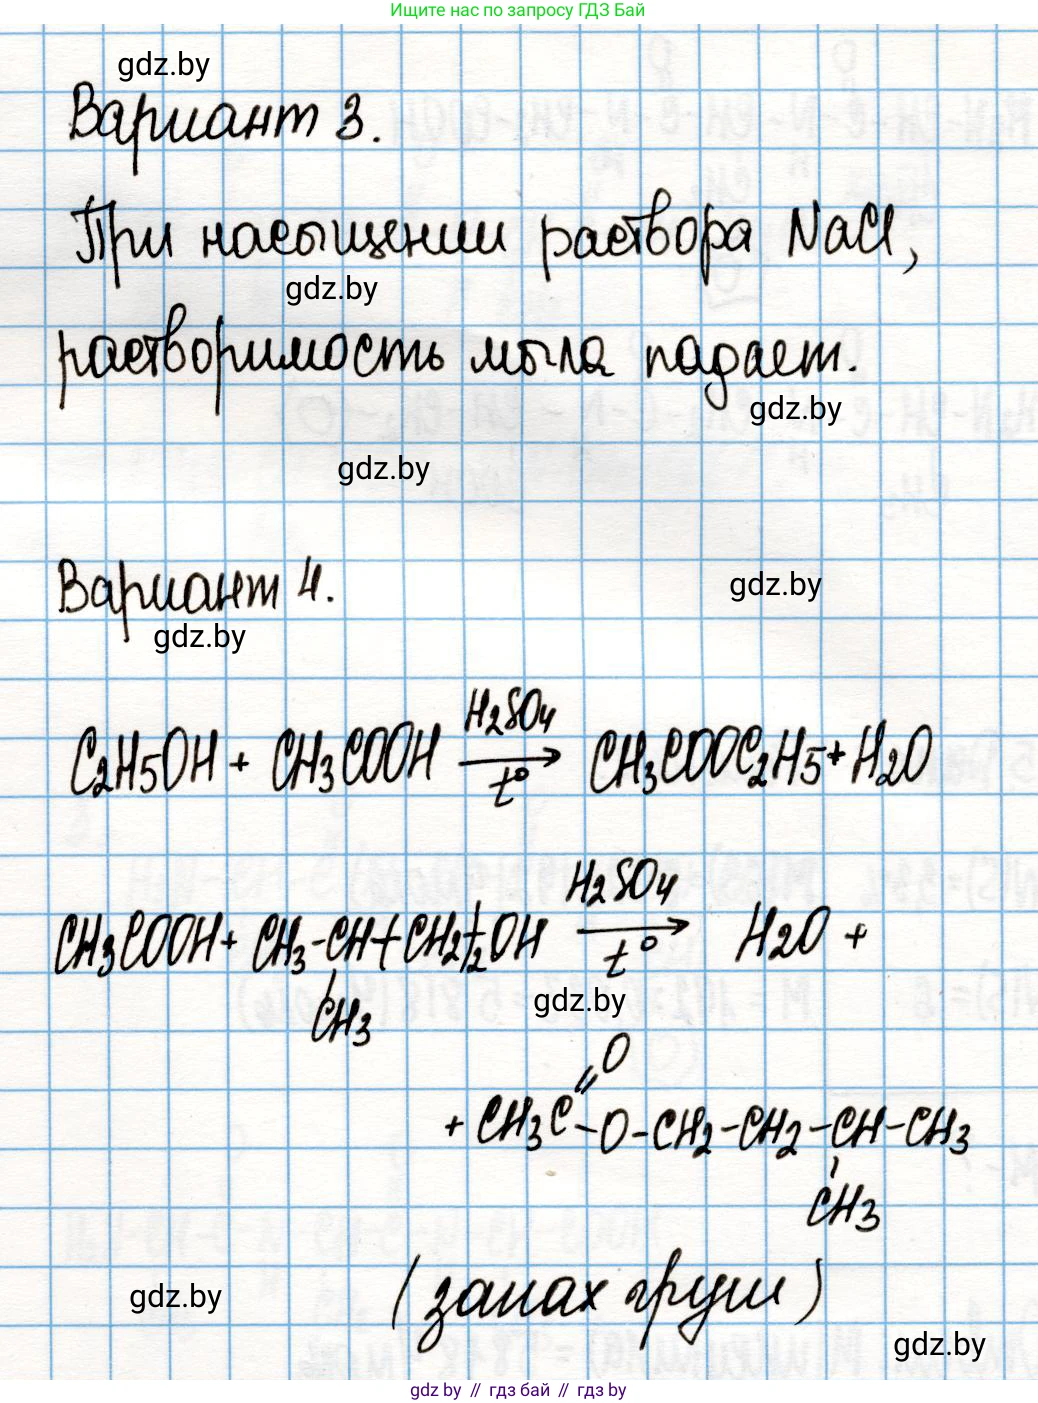 Ищите нас по запросу ГДЗ Бай
gdz.by
Вариант 3.
При насыщении раствора NaCl,
gdz.by
растворимость мыла падает.
gdz.by
gdz.by
Вариант 4.
gdz.by
gdz.by
C2H5OH + CH3COOH H2SO4 → t° CH3COOC2H5 + H2O
CH3COOH + CH3-CH-(CH2)2OH H2SO4 → t° H2O +
CH3
gdz.by
+ CH3C=O -O-CH2-CH2-CH-CH3
CH3
(запах груш)
gdz.by
gdz.by
gdz.by // гдз бай // гдз by